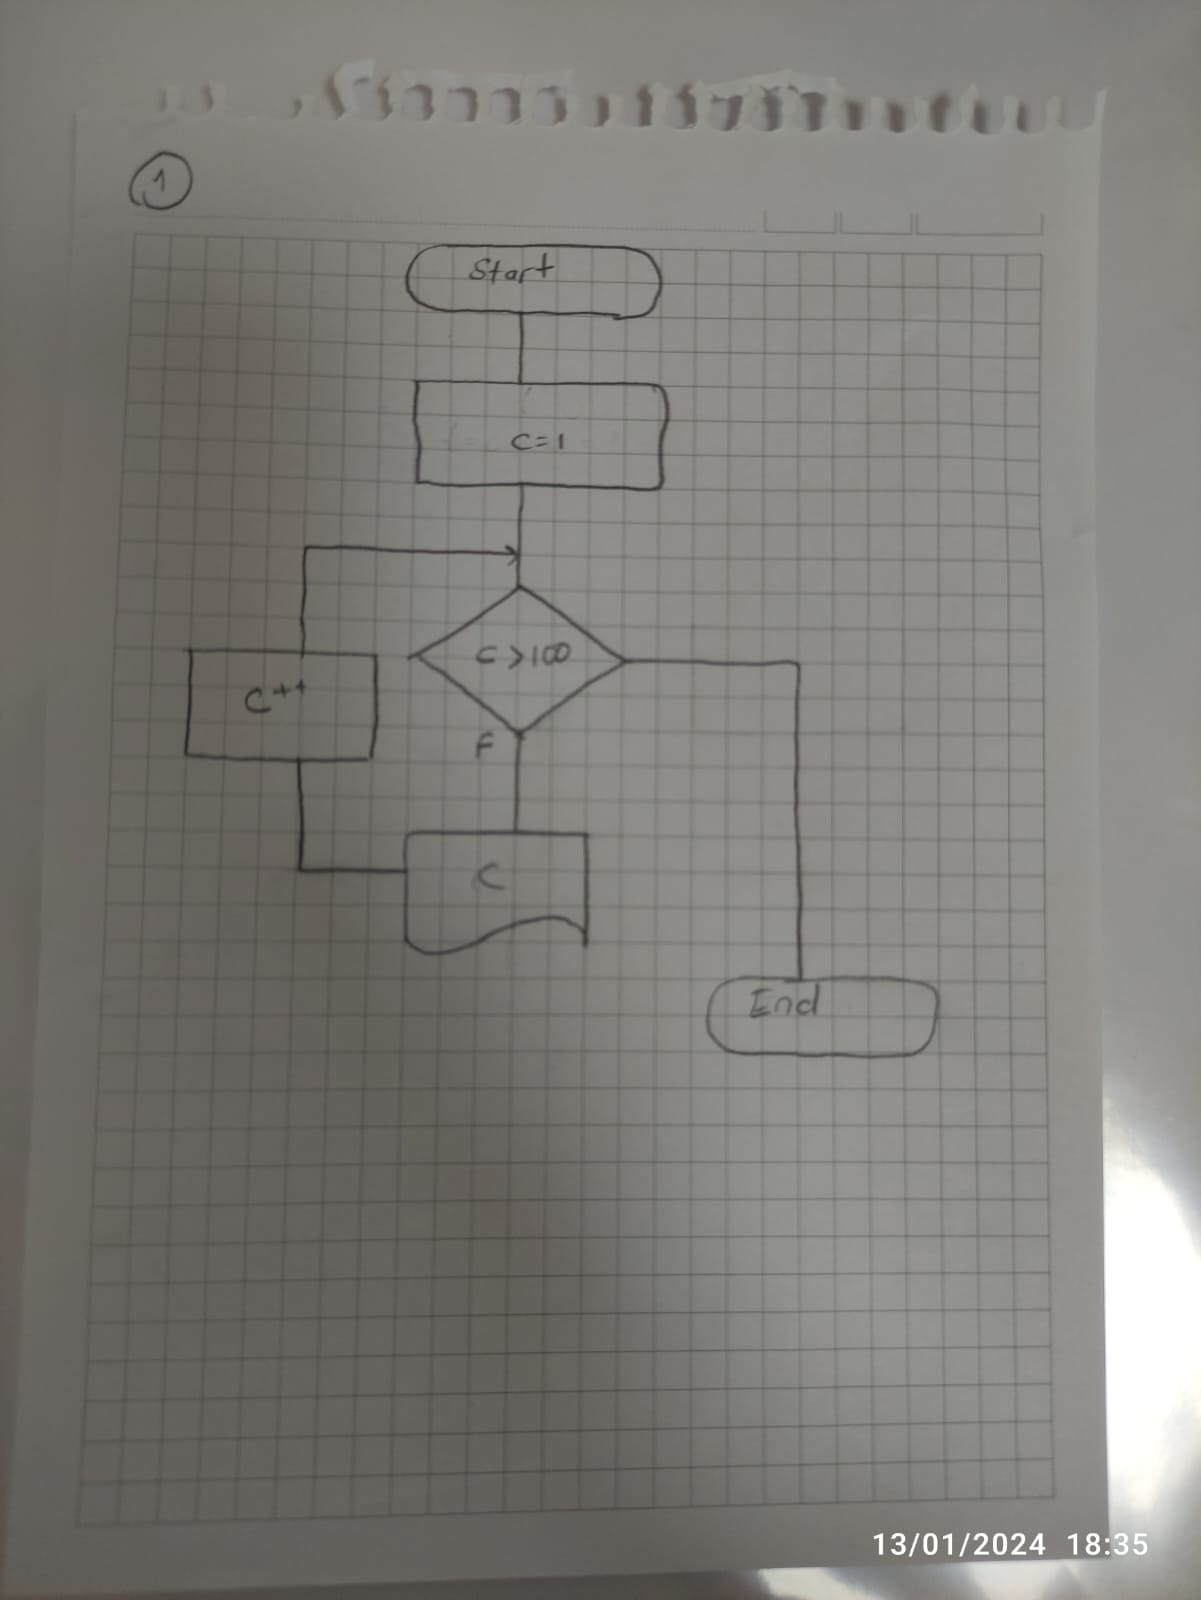 1
Start
C=1
C>100
C++
F
C
End
13/01/2024 18:35